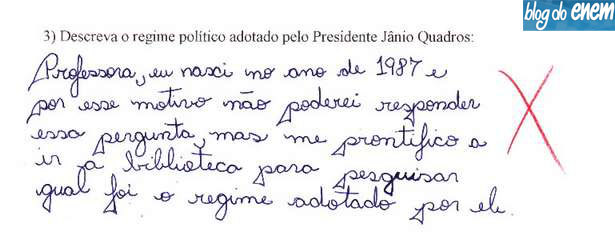 blog do enem
3) Descreva o regime político adotado pelo Presidente Jânio Quadros:
Professora, eu nasci no ano de 1987 e
por esse motivo não poderei responder
essa pergunta, mas me prontifico a
ir à biblioteca para pesquisar
qual foi o regime adotado por ele.